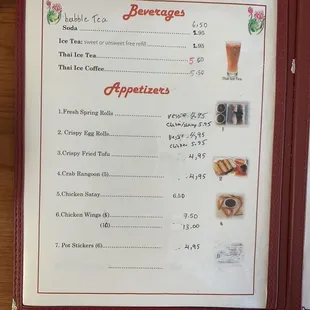 bubble Tea
Beverages
6.50
Soda 2.95
Ice Tea: sweet or unsweet free refill 2.95
Thai Ice Tea 5.50
Thai Ice Coffee 5.50
Thai Ice Tea
Appetizers
1.Fresh Spring Rolls 4.95
5.95
1
2. Crispy Egg Rolls 4.95
chicken 5.95
3.Crispy Fried Tofu 4.95
4.Crab Rangoon (5) 4.95
2
5.Chicken Satay 6.50
6.Chicken Wings (5) 7.50
(10) 13.00
4
7. Pot Stickers (6) 4.95